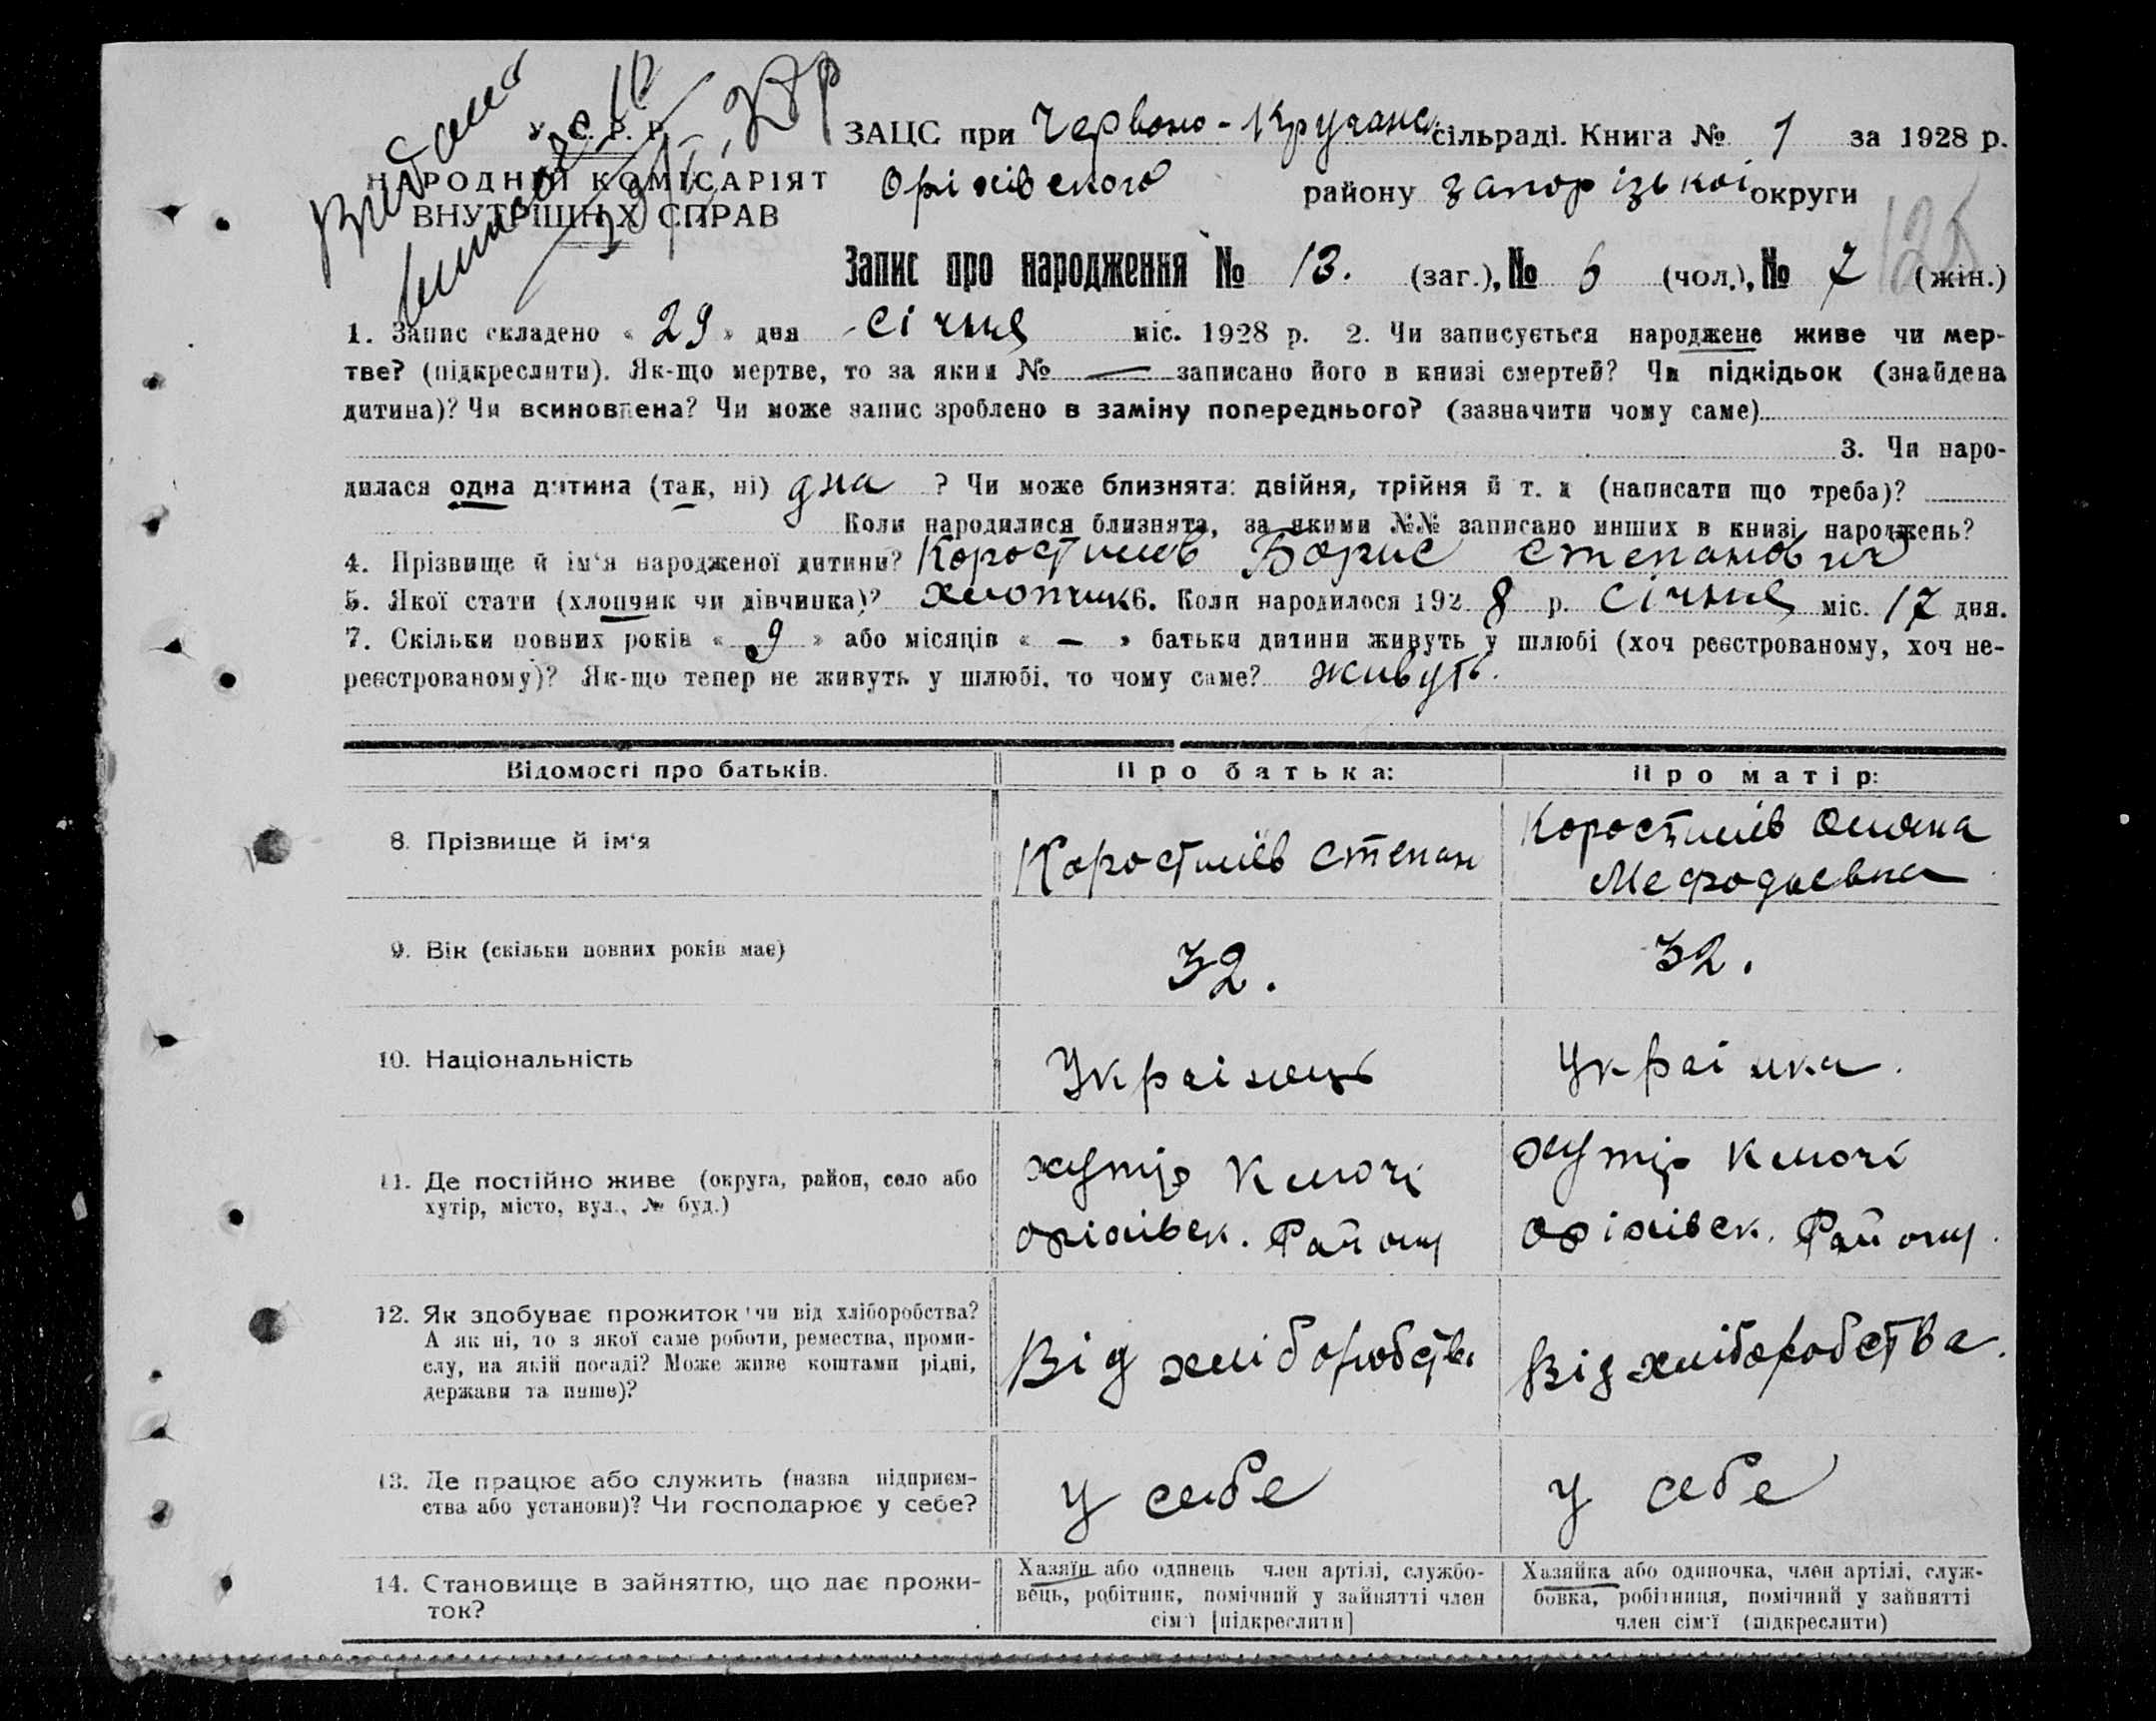 У. С. Р. Р.
НАРОДНІЙ КОМІСАРІЯТ
ВНУТРІШНІХ СПРАВ
ЗАЦС при Червоно-Кручанс. сільраді. Книга № 1 за 1928 р.
Оріхівського району Запорізької округи
125
Запис про народження № 13. (заг.), № 6 (чол.), № 7 (жін.)
1. Запис складено « 29 » дня січня міс. 1928 р. 2. Чи записується народжене живе чи мер-
тве? (підкреслити). Як-що мертве, то за яким № — записано його в книзі смертей? Чи підкідьок (знайдена
дитина)? Чи всиновлена? Чи може запис зроблено в заміну попереднього? (зазначити чому саме)
3. Чи наро-
дилася одна дитина (так, ні) дна ? Чи може близнята: двійня, трійня й т. д (написати що треба)?
Коли народилися близнята, за якими №№ записано инших в книзі народжень?
4. Прізвище й ім'я народженої дитини? Коростилів Борис Степанович
5. Якої стати (хлопчик чи дівчинка)? хлопчик 6. Коли народилося 192 8 р. січня міс. 17 дня.
7. Скільки повних років « 9 » або місяців « — » батьки дитини живуть у шлюбі (хоч реєстрованому, хоч не-
реєстрованому)? Як-що тепер не живуть у шлюбі, то чому саме? живуть.
Відомості про батьків. Про батька: Про матір:
8. Прізвище й ім'я
Коростилів Степан
Коростилів Оляна
Мефодьевна
9. Вік (скільки повних років має)
32.
32.
10. Національність
Українець
Українка.
11. Де постійно живе (округа, район, село або
хутір, місто, вул., № буд.)
хутір Ключі
оріхівск. Району
хутір Ключі
оріхівск. Району.
12. Як здобуває прожиток чи від хліборобства?
А як ні, то з якої саме роботи, ремества, проми-
слу, на якій посаді? Може живе коштами рідні,
держави та инше)?
Від хліборобства
Від хліборобства.
13. Де працює або служить (назва підприєм-
ства або установи)? Чи господарює у себе?
у себе
у себе
14. Становище в зайняттю, що дає прожи-
ток?
Хазяїн або одинець член артілі, службо-
вець, робітник, помічний у зайнятті член
сім'ї [підкреслити]
Хазяйка або одиночка, член артілі, служ-
бовка, робітниця, помічний у зайнятті
член сім'ї (підкреслити)